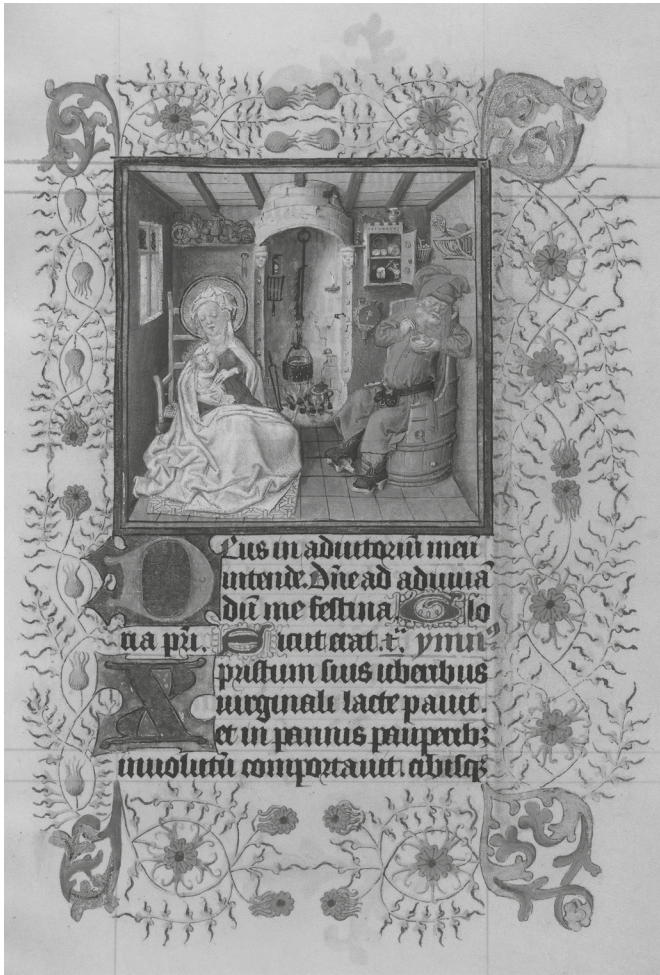 Deus in adiutoriū meū
intende. Dñe ad adiuuā
dū me festina Glo
ria pr̄i. Sicut erat. ymn⁹
Xpristum suis uberibus
uirginali lacte pauit.
et in pannis pauperibꝫ
inuolutū comportauit cibisqꝫ